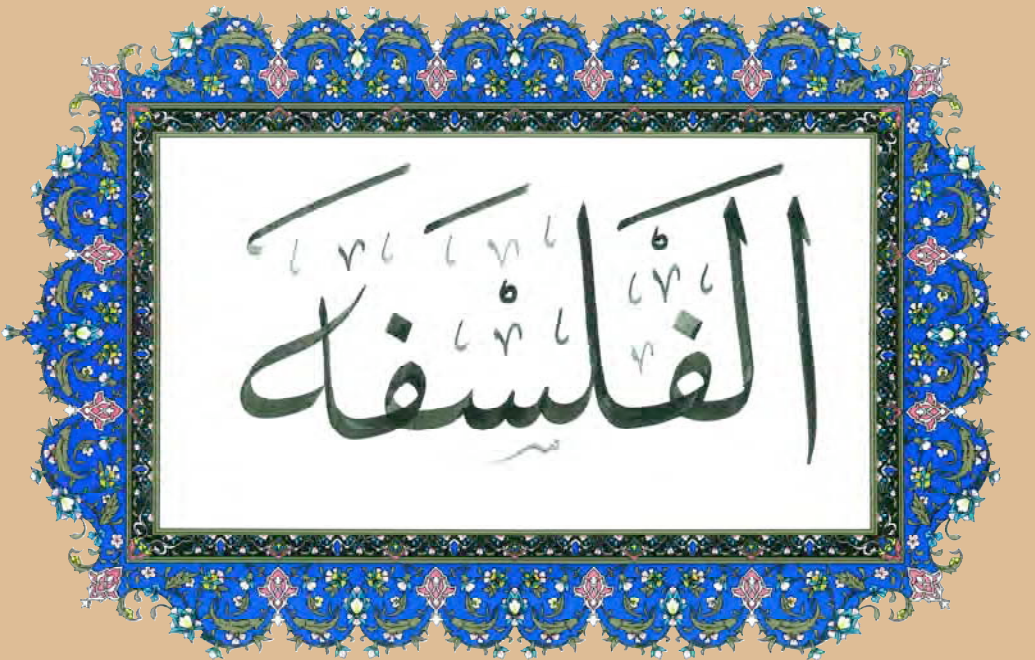 الفلسفه